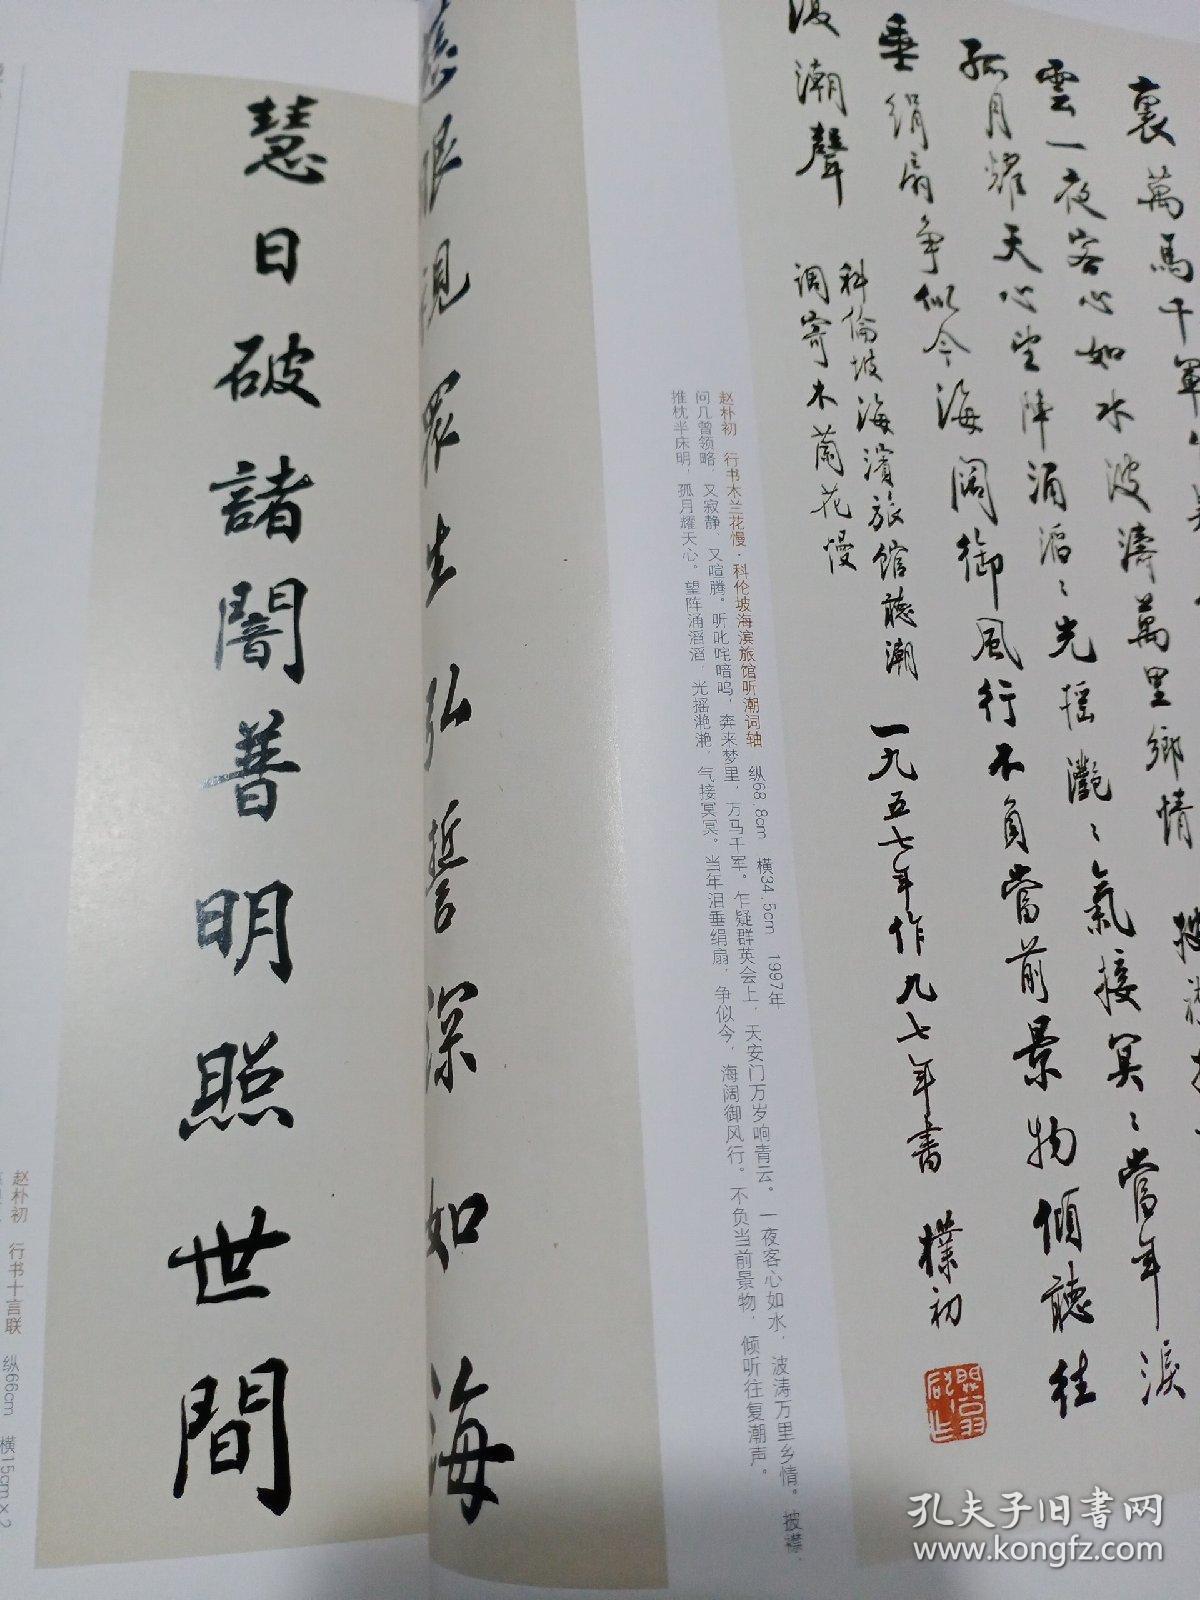 裏萬馬千軍乍疑
雲一夜客心如水波濤萬里鄉情 披襟
孤月耀天心望陣涌滔〻光摇灔〻氣接冥〻當年淚
垂絹扇争似今海阔御風行不負當前景物傾聽往
復潮聲
科倫坡海濱旅館聽潮
調寄木蘭花慢
一九五七年作九七年書 樸初
赵朴初 行书木兰花慢·科伦坡海滨旅馆听潮词轴 纵68.8cm 横34.5cm 1997年
问几曾领略，又寂静、又喧腾。听叱咤喑呜，奔来梦里，万马千军。乍疑群英会上，天安门万岁响青云。一夜客心如水，波涛万里乡情。 披襟、
推枕半床明，孤月耀天心。望阵涌滔滔，光摇滟滟，气接冥冥。当年泪垂绢扇，争似今，海阔御风行。不负当前景物，倾听往复潮声。
慈眼視眾生弘誓深如海
慧日破諸闇普明照世間
赵朴初 行书十言联 纵66cm 横15cm×2
孔夫子旧书网
www.kongfz.com